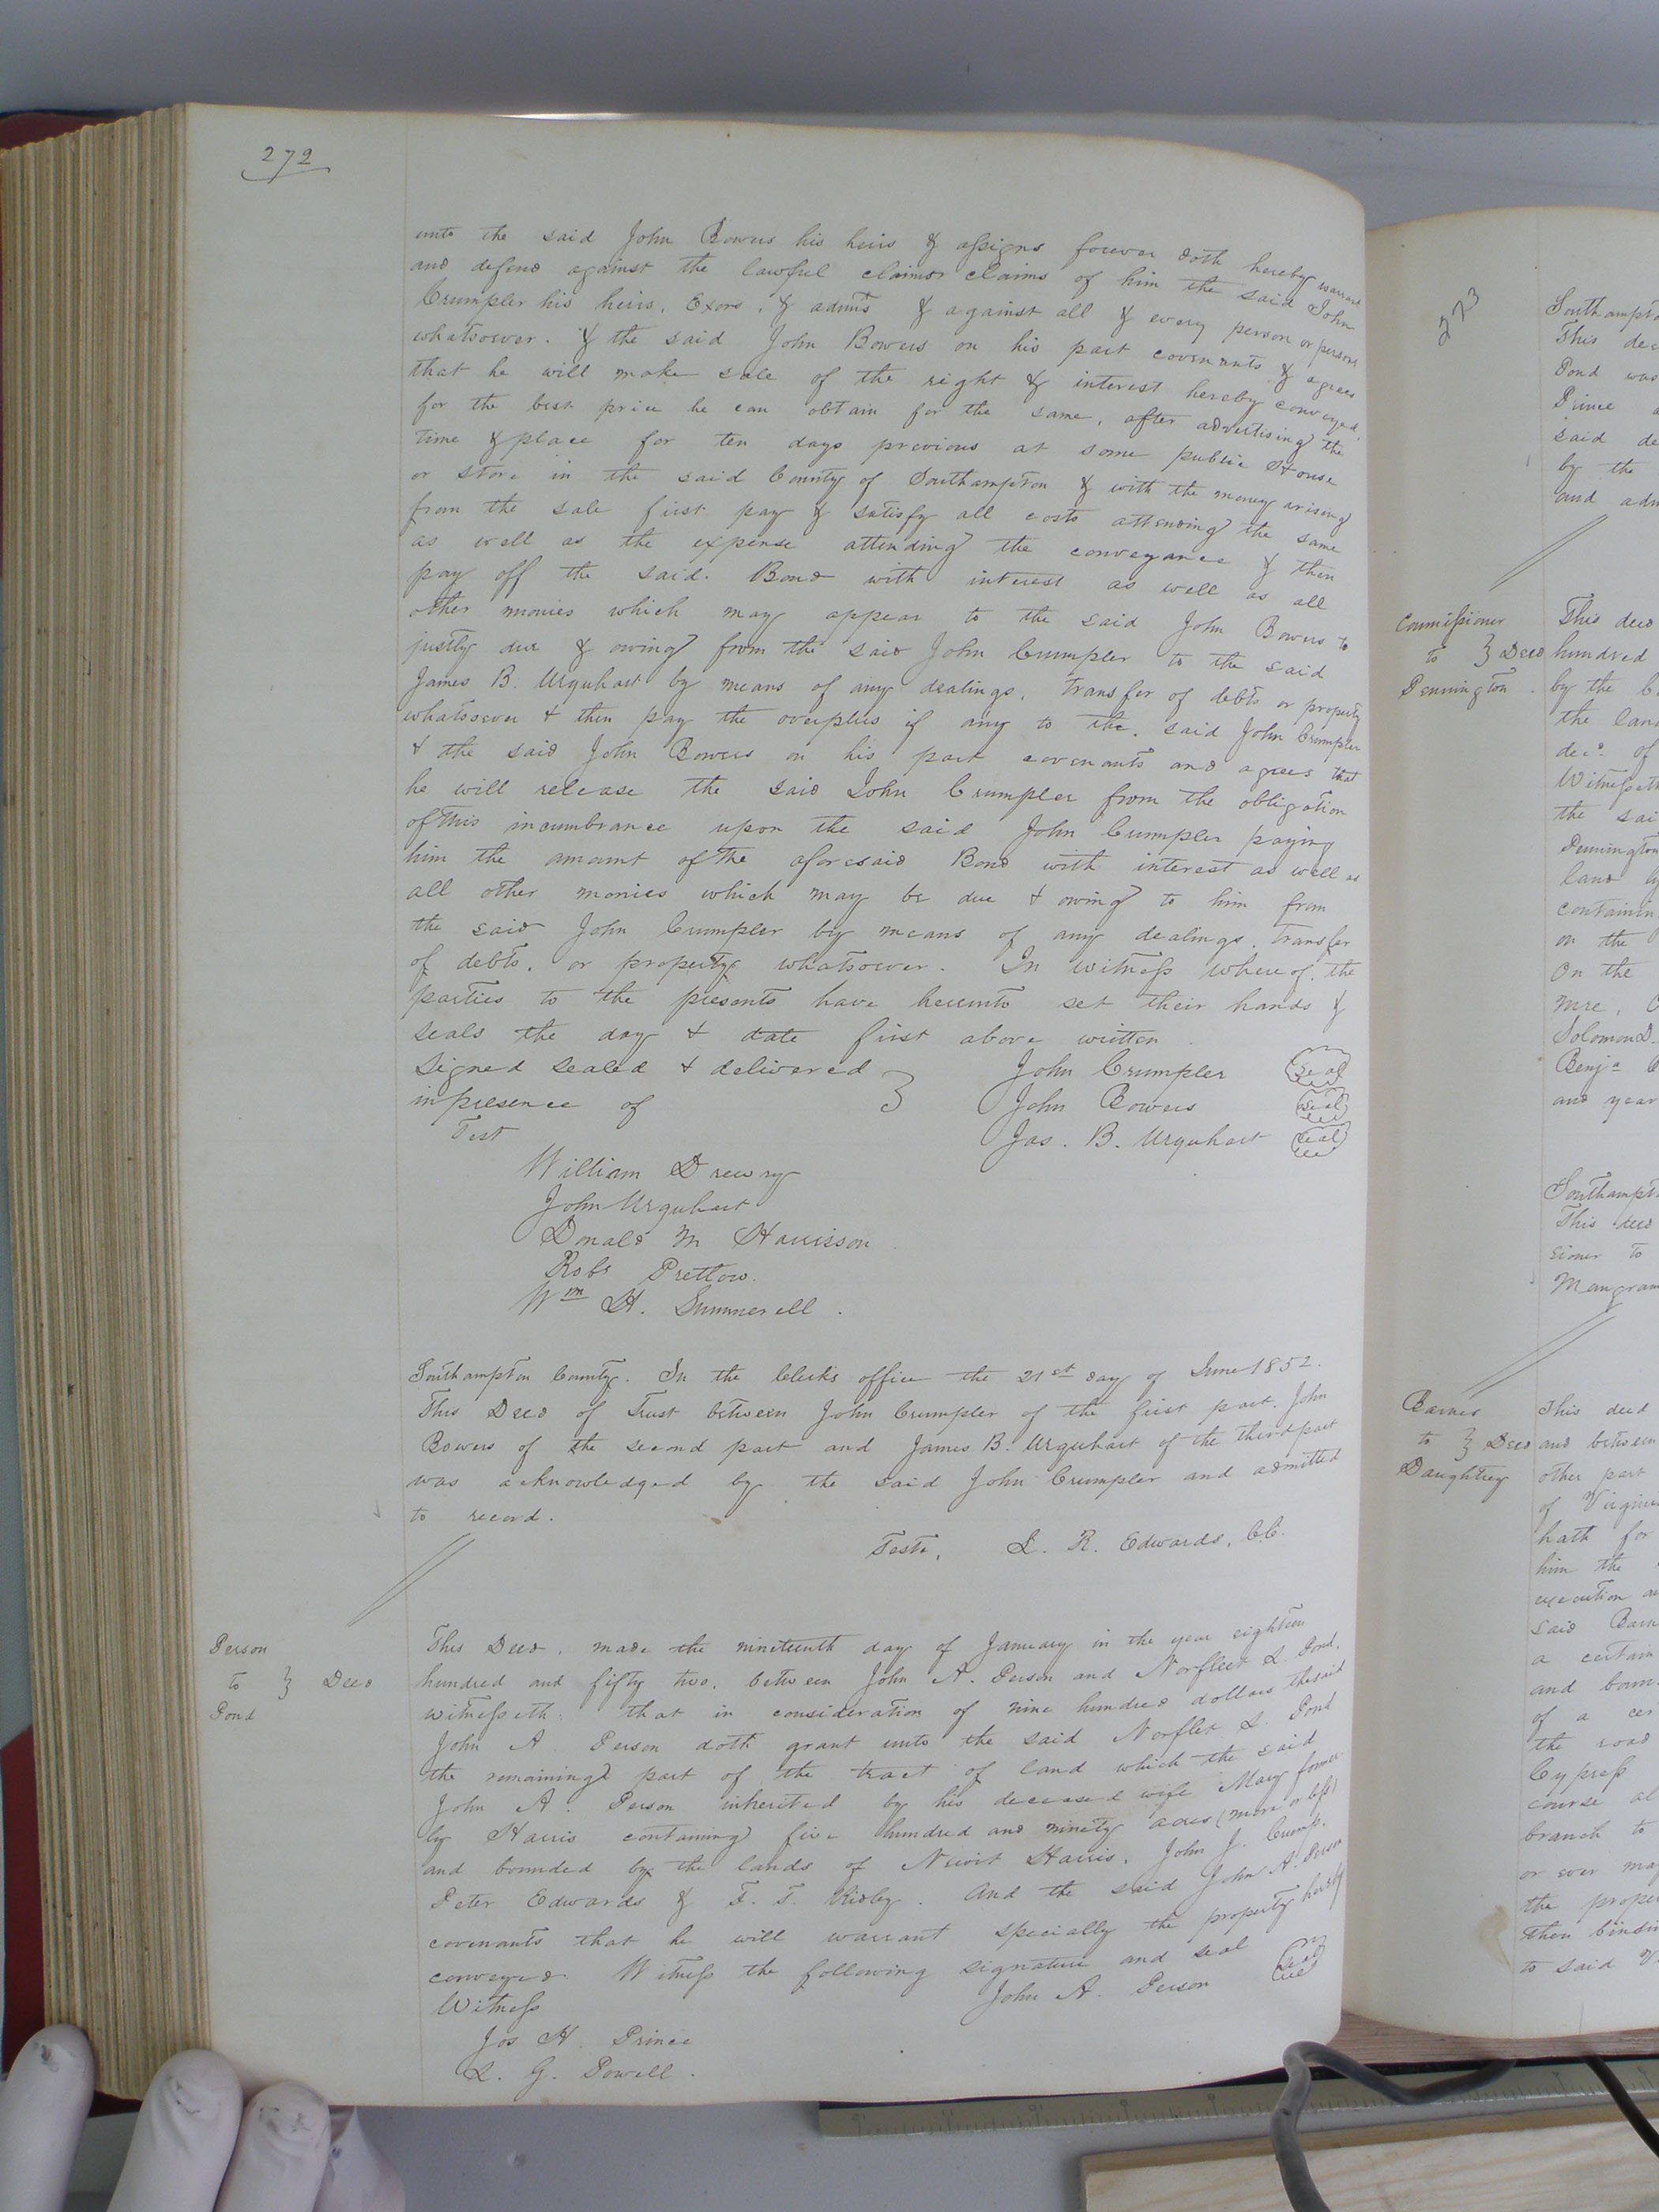 272
unto the said John Bowers his heirs & assigns forever doth hereby warrant
and defend against the lawful claims claims of him the said John
Crumpler his heirs, Exors, & admrs & against all & every person or persons
whatsoever. & the said John Bowers on his part covenants & agrees
that he will make sale of the right & interest hereby conveyed,
for the best price he can obtain for the same, after advertising the
time & place for ten days previous at some public House
or store in the said County of Southampton & with the money arising
from the sale first pay & satisfy all costs attending the same
as well as the expense attending the conveyance & then
pay off the said Bond with interest as well as all
other monies which may appear to the said John Bowers to
justly due & owing from the said John Crumpler to the said
James B. Urquhart by means of any dealings, transfer of debts or property
whatsoever & then pay the overplus if any to the said John Crumpler
& the said John Bowers on his part covenants and agrees that
he will release the said John Crumpler from the obligation
of this incumbrance upon the said John Crumpler paying
him the amount of the aforesaid Bond with interest as well as
all other monies which may be due & owing to him from
the said John Crumpler by means of any dealings, transfer
of debts, or property whatsoever. In witness whereof, the
parties to the presents have hereunto set their hands &
seals the day & date first above written
Signed sealed & delivered } John Crumpler Seal
in presence of John Bowers Seal
Test Jas. B. Urquhart Seal
William Drewry
John Urquhart
Donald M Harrisson
Robt Prettow.
Wm H. Summerell.
Southampton County. In the Clerks office the 21st day of June 1852.
This Deed of Trust between John Crumpler of the first part, John
Bowers of the second part and James B. Urquhart of the third part
was acknowledged by the said John Crumpler and admitted
to record.
Teste, L. R. Edwards, C.C.
Person
to } Deed
Pond
This Deed, made the nineteenth day of January in the year eighteen
hundred and fifty two, between John A. Person and Norfleet L. Pond,
witnesseth: that in consideration of nine hundred dollars the said
John A Person doth grant unto the said Norflet L. Pond
the remaining part of the tract of land which the said
John A. Person inherited by his deceased wife Mary former
ly Harris containing five hundred and ninety acres (more or less)
and bounded by the lands of Newit Harris, John J. Crump,
Peter Edwards & F. T. Ridley. And the said John A. Person
covenants that he will warrant specially the property hereby
conveyed. Witness the following signature and seal
Witness John A. Person Seal
Jos H. Prince
L. G. Powell.
273
Southampto
This dee
Pond was
Prince a
said de
by the
and adm
Commissioner
to } Deed
Pennington
This deed
hundred
by the C
the land
decd. of
Witnesseth
the sai
Pennington
land ly
containin
on the
On the
mre, C
Solomon D.
Benja C
and year
Southampt
This deed
sioner to
Mangram
Barnes
to } Deed
Daughtrey
This deed
and between
other part
of Virgini
hath for
him the
execution an
said Barn
a certain
and boun
of a cer
the road
Cypress
course al
branch to
or ever may
the proper
then bindin
to said V